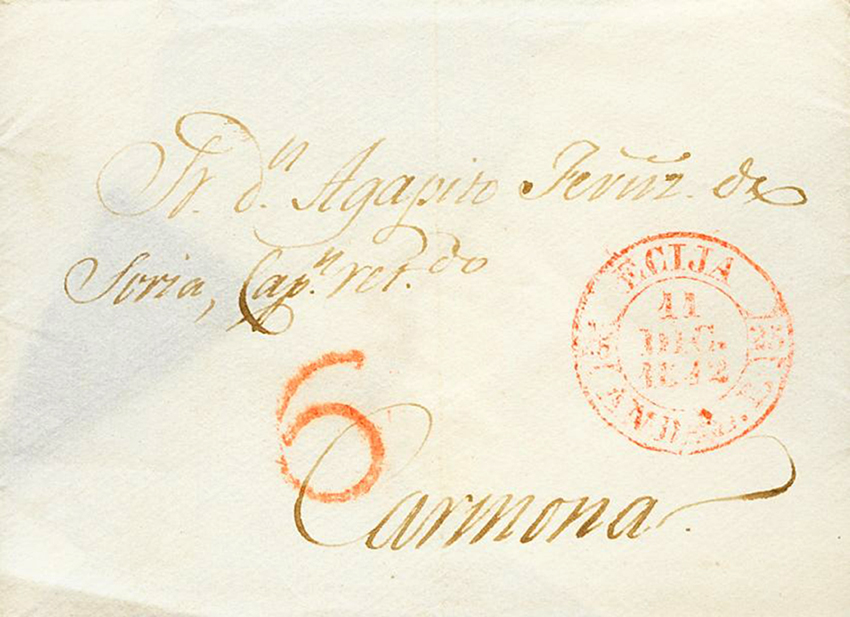 Sr. dⁿ. Agapito Fernz. de
Soria, Capⁿ. ret.do
ECIJA
11
DIC.
1842
ANDAL. BAJA
6
Carmona.